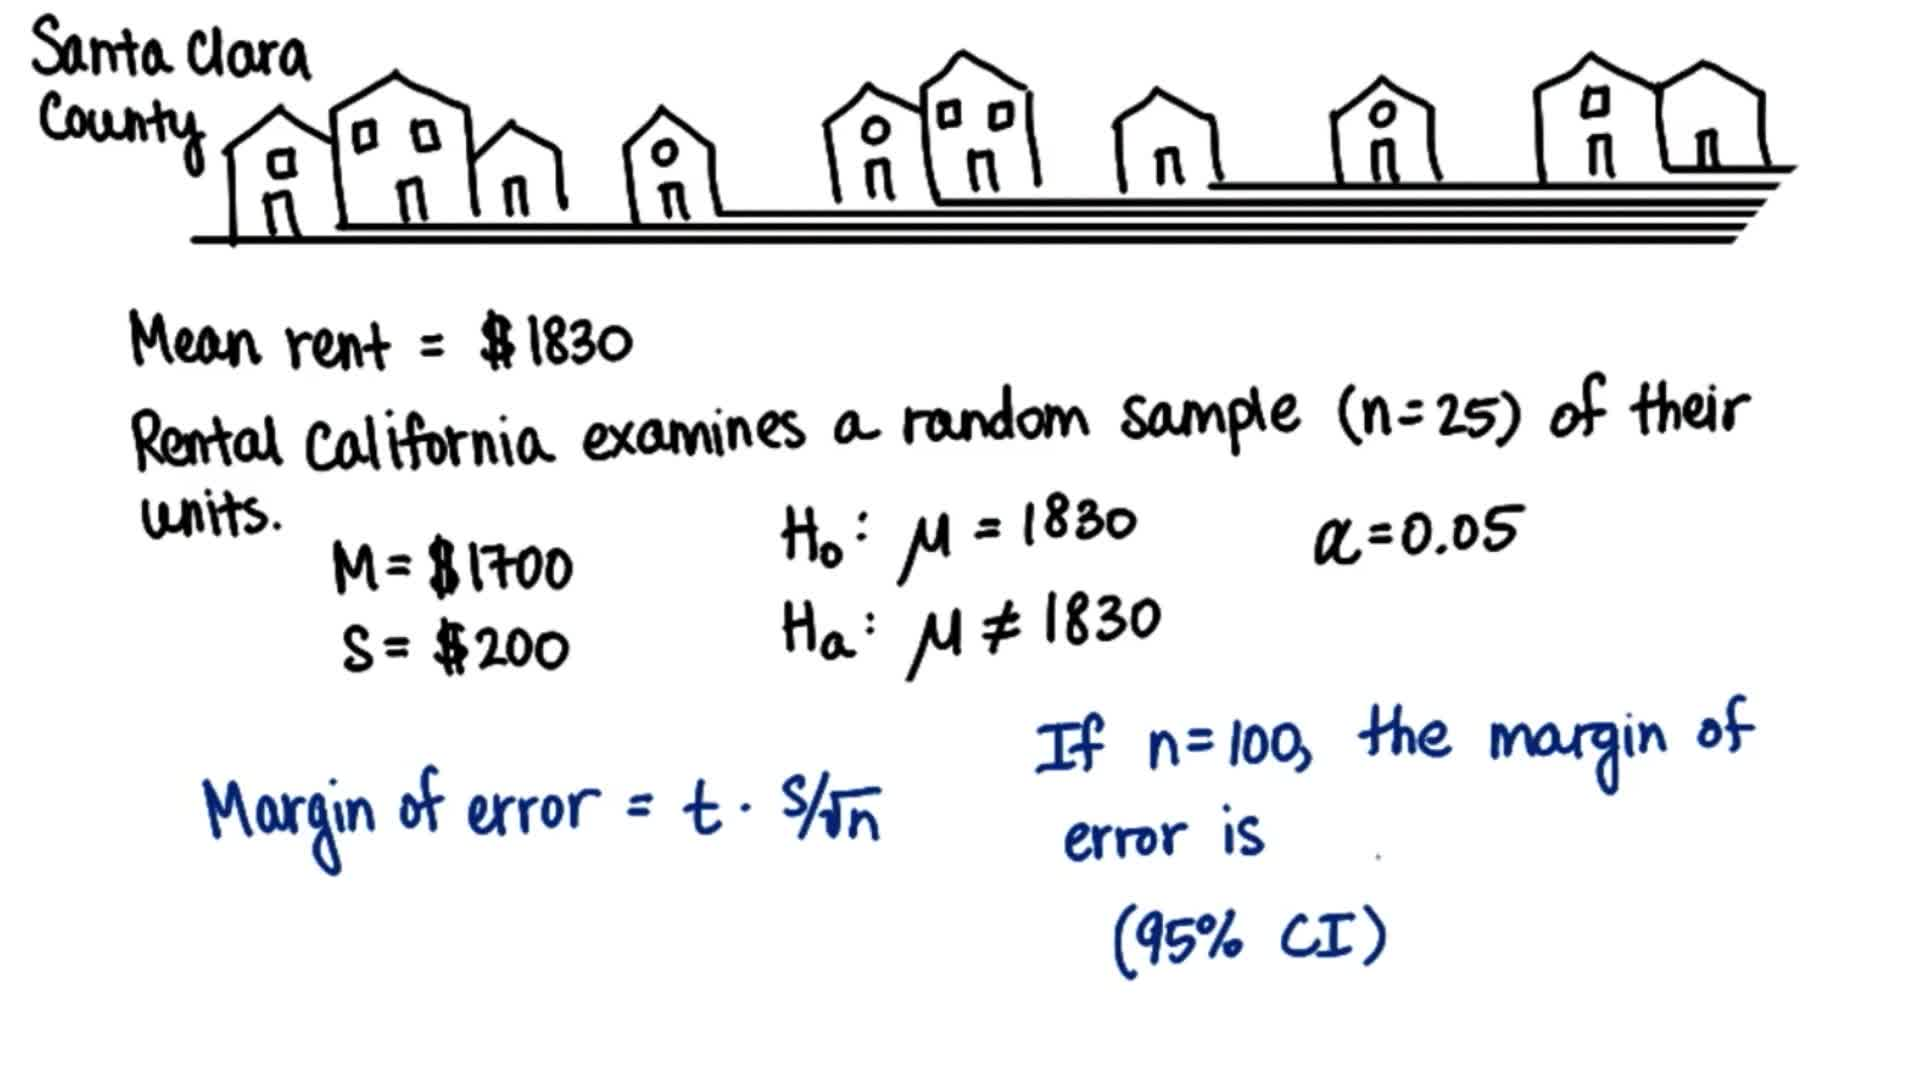 Santa Clara
County
Mean rent = $1830
Rental California examines a random sample (n=25) of their
units.
M = $1700
S = $200
H₀: μ = 1830
Hₐ: μ ≠ 1830
α=0.05
Margin of error = t · S/√n
If n=100, the margin of
error is
(95% CI)